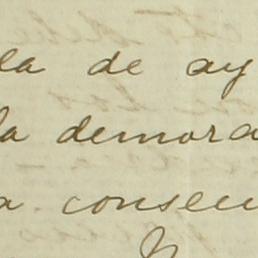 la de ay
la demora
a consecu